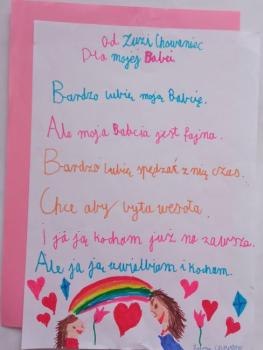 Od Zuzi Chowaniec
Dla mojej Babci
Bardzo lubię moją Babcię.
Ale moja Babcia jest fajna.
Bardzo lubię spędzać z nią czas.
Chcę aby była wesoła.
I ja ją kocham już na zawsze.
Ale ja ją uwielbiam i kocham.